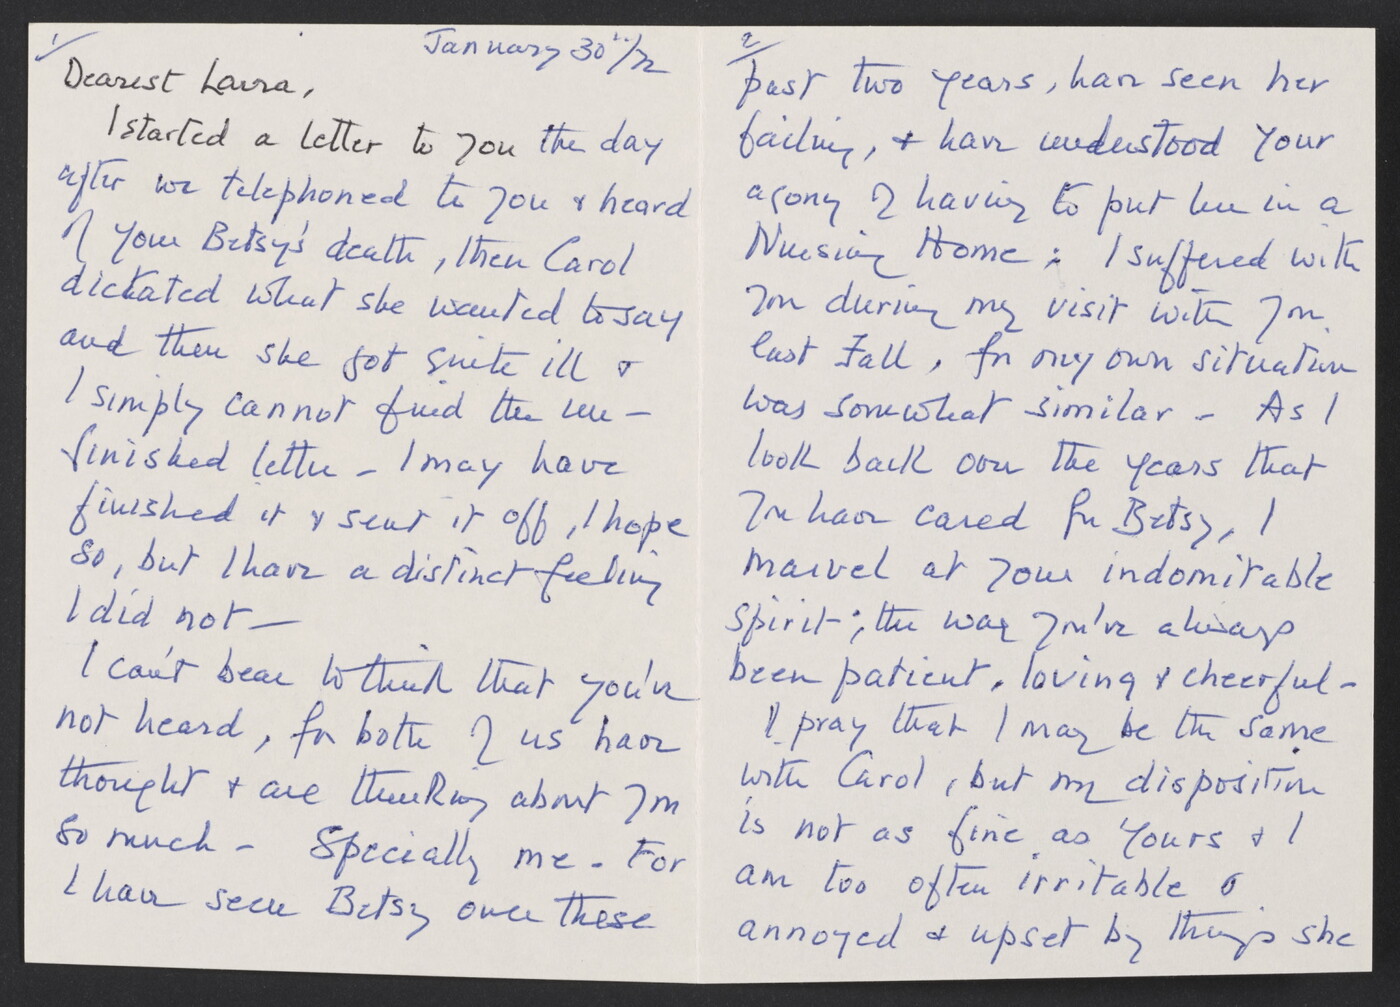 1/
January 30th/72
Dearest Laura,
I started a letter to you the day
after we telephoned to you & heard
of your Betsy's death, then Carol
dictated what she wanted to say
and then she got quite ill &
I simply cannot find the un-
finished letter - I may have
finished it & sent it off, I hope
so, but I have a distinct feeling
I did not —
I can't bear to think that you've
not heard, for both of us have
thought & are thinking about you
so much - Specially me. For
I have seen Betsy over these
2/
past two years, have seen her
failing, & have understood your
agony of having to put her in a
Nursing Home: I suffered with
you during my visit with you
last Fall, for my own situation
was somewhat similar - As I
look back over the years that
you have cared for Betsy, I
marvel at your indomitable
spirit; the way you've always
been patient, loving & cheerful -
I pray that I may be the same
with Carol, but my disposition
is not as fine as yours & I
am too often irritable &
annoyed & upset by things she